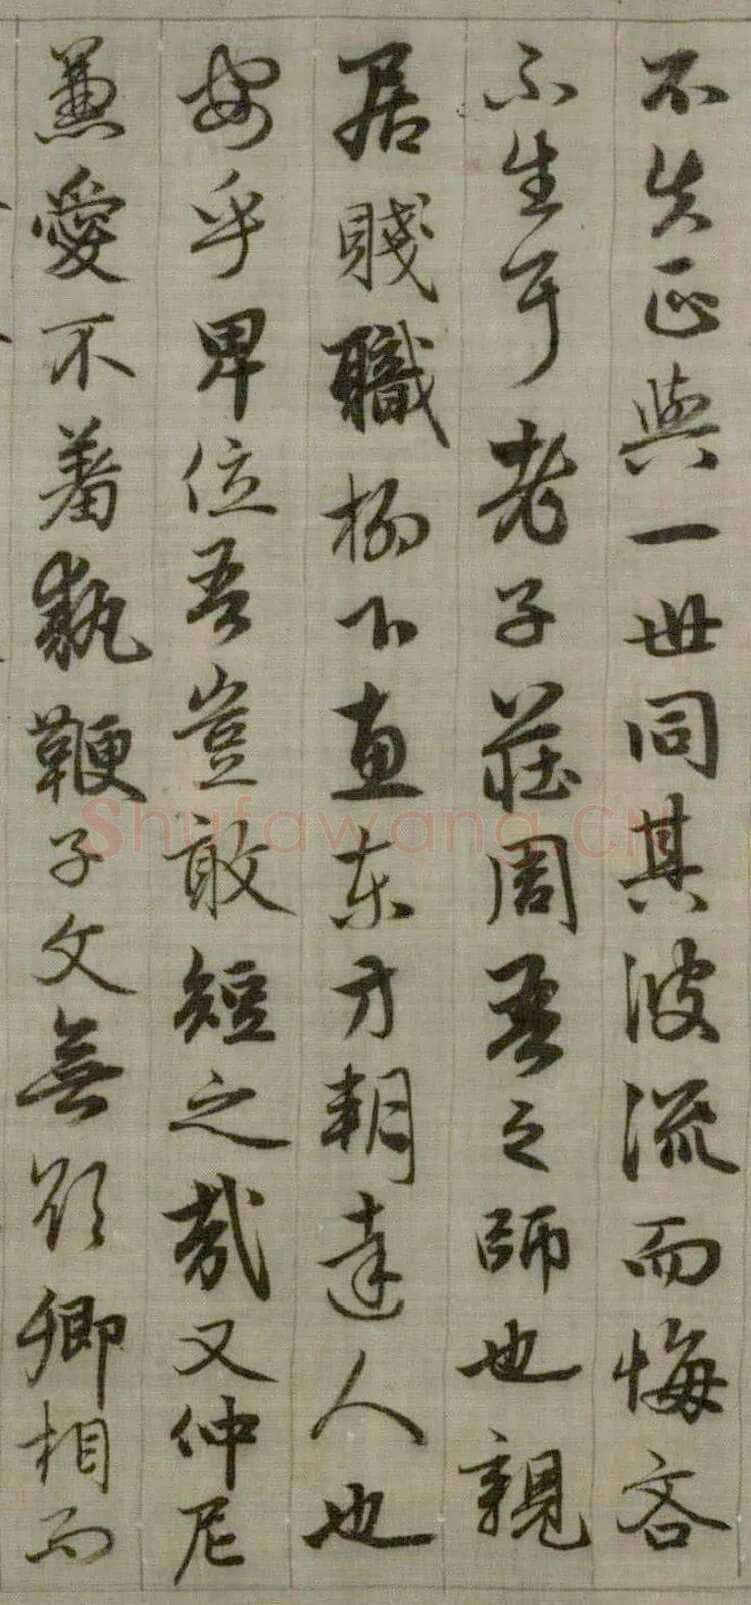 不失正與一世同其波流而悔吝
不生耳老子莊周吾之師也親
居賤職柳下惠東方朔達人也
安乎卑位吾豈敢短之哉又仲尼
兼愛不羞執鞭子文無欲卿相而
Shufawang.CN